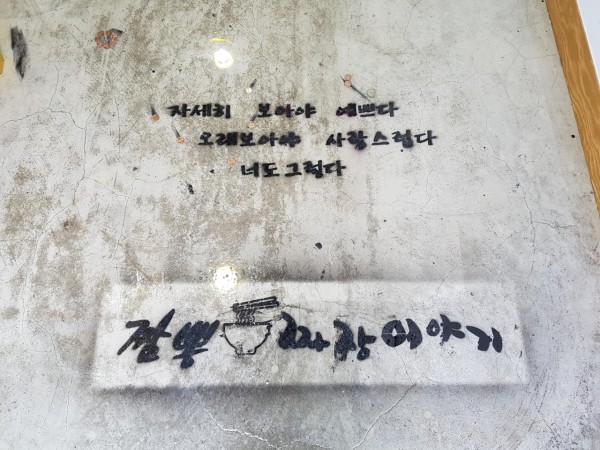 자세히 보아야 예쁘다
오래보아야 사랑스럽다
너도그렇다
짬뽕 짜장이야기